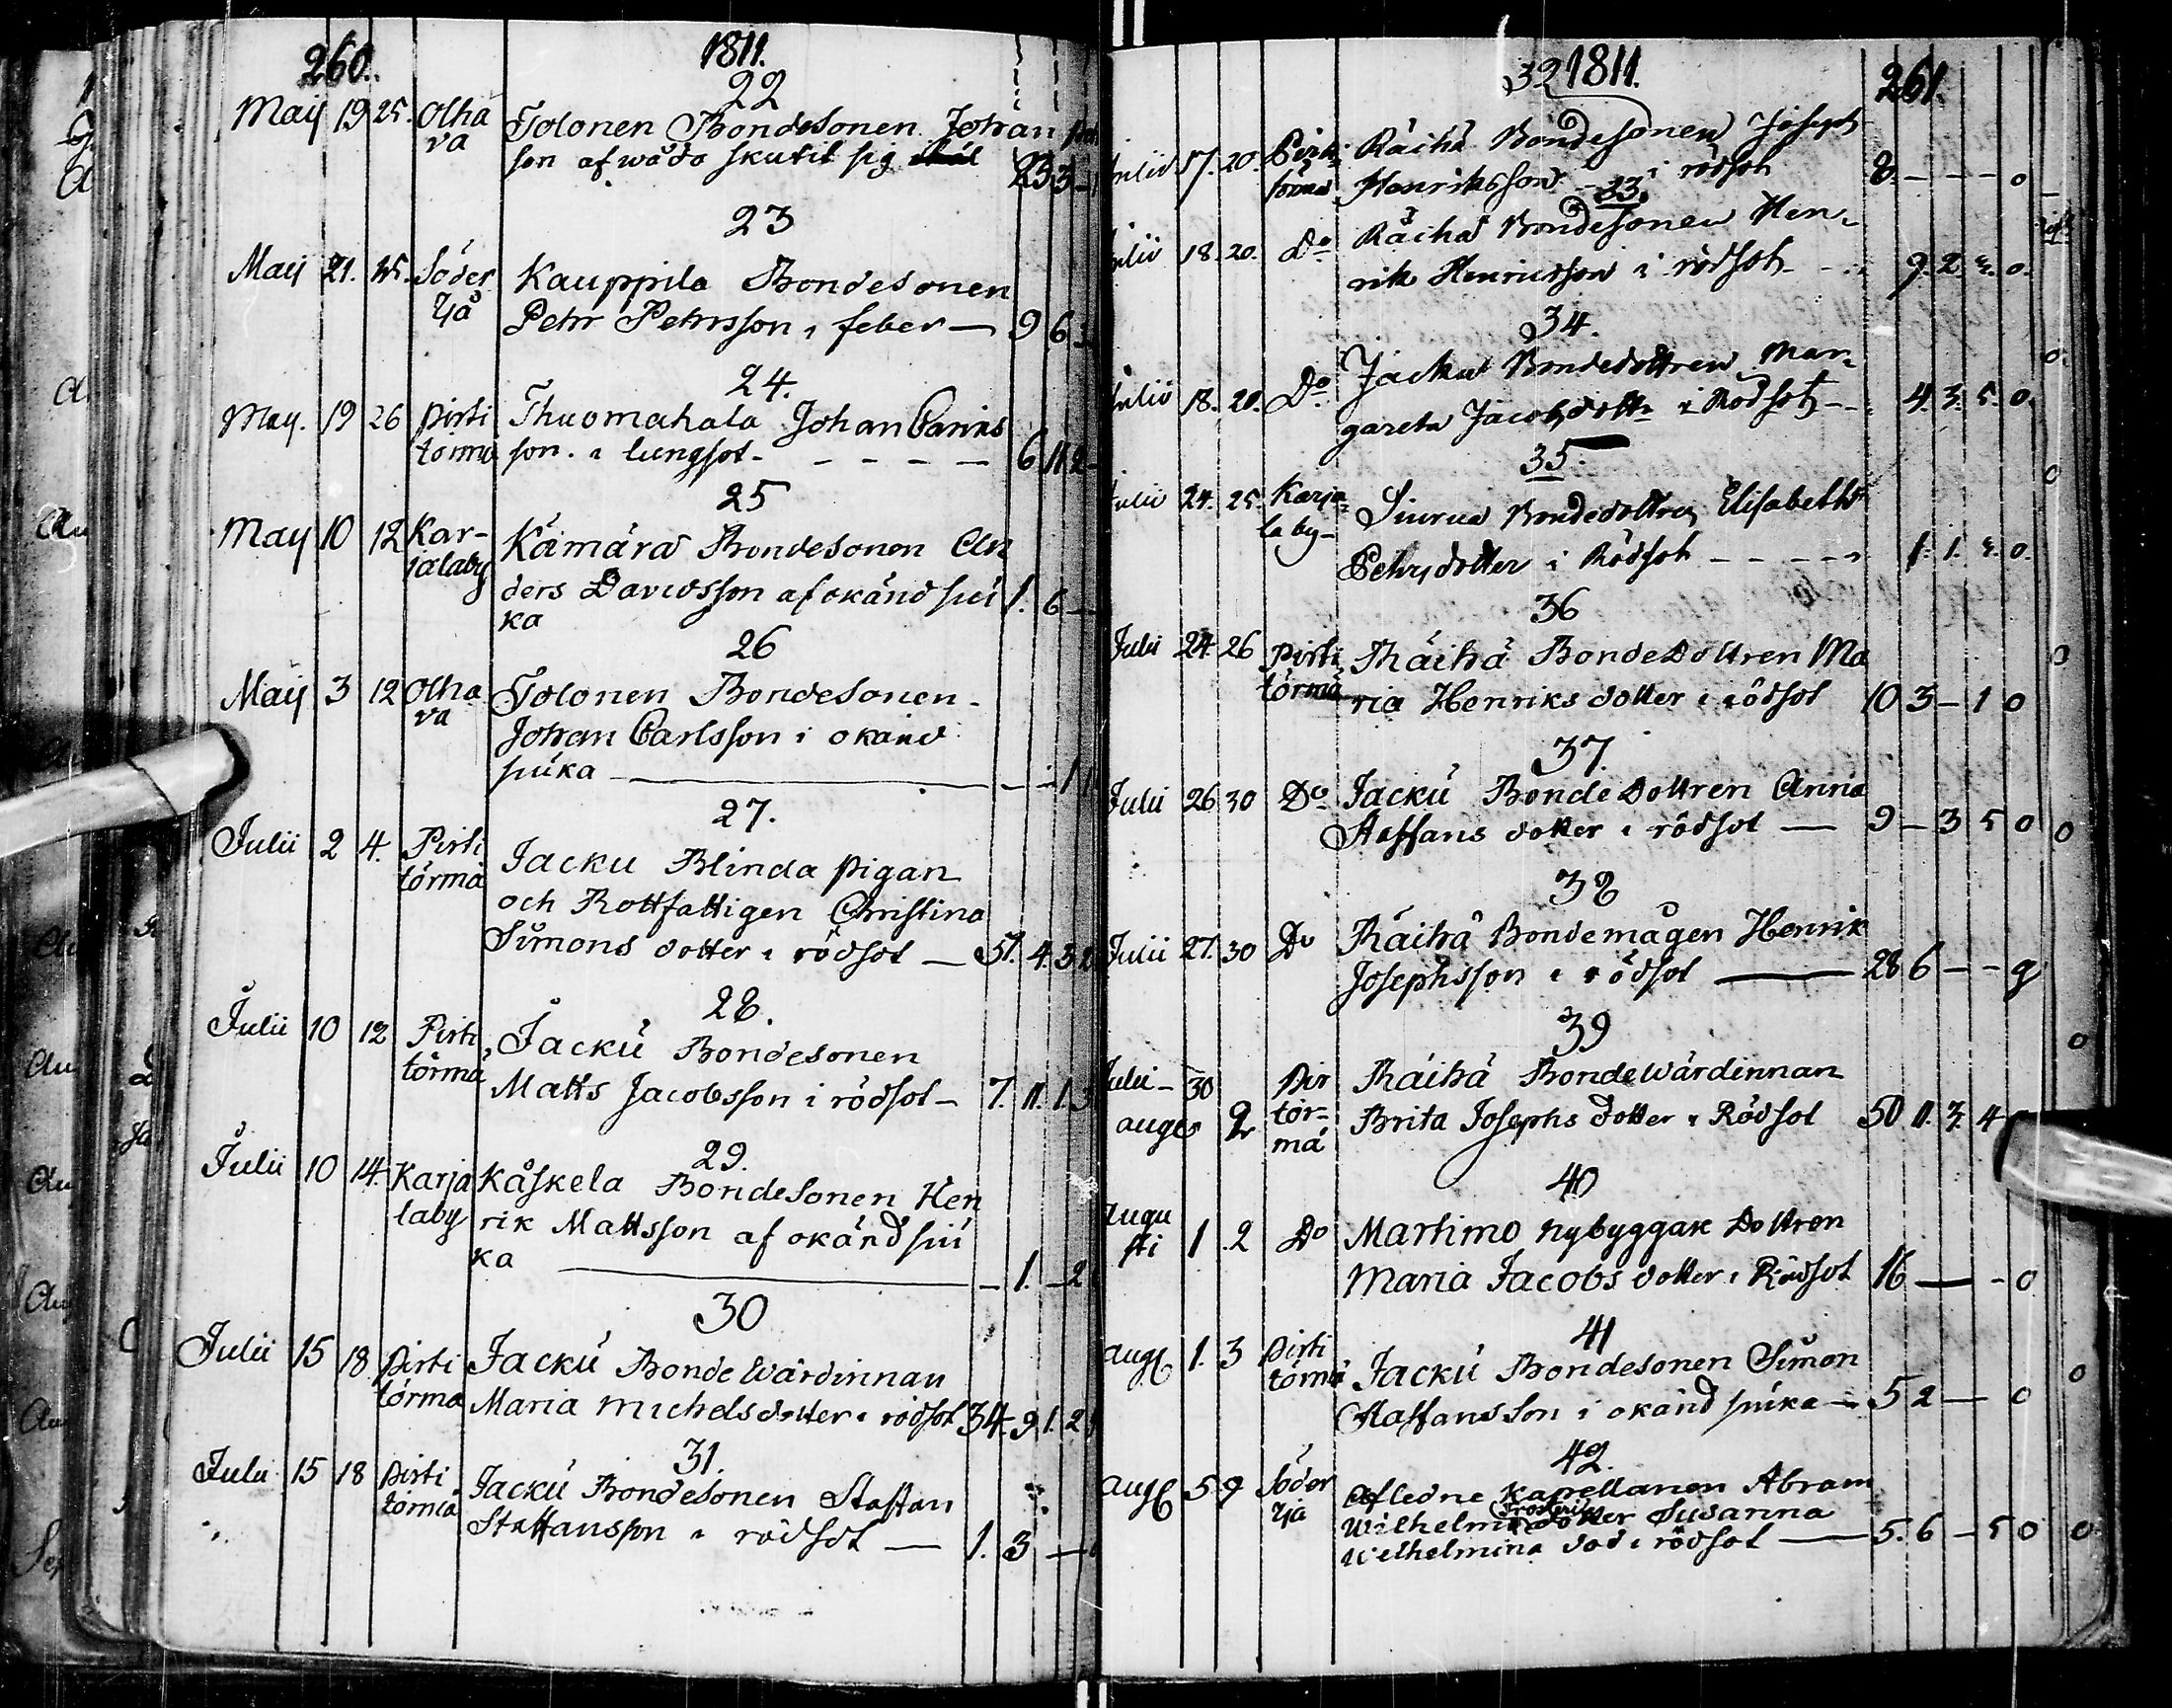 260. 1811.
22
Maij 19 25. Olha Tolonen Bondesonen Johan
va son af wåda skutit sig 23 3
23
Maij 21. 25. Söder Kauppila Bondesonen
Ijå Pehr Pehrsson i feber — 9 6
24.
Maij. 19 26 Pirti Thuomahala Johan Carins
törmä son. i lungsot - - - - - 6 11 2
25
Maij 10 12 Kar- Kämärä Bondesonen An
jalaby ders Davidsson af okänd sjú 1. 6 —
ka
26
Maij 3 12 Olha Tolonen Bondesonen
va Johan Carlsson i okänd
sjúka — — — 1
27.
Julii 2 4. Pirti Jacku Blinda pigan
törmä och Rottfattigen Christina
Simons dotter i rödsot — 57. 4. 3 2
28.
Julii 10 12 Pirti Jackú Bondesonen
törmä Matts Jacobsson i rödsot - 7. 11. 1. 3
29.
Julii 10 14. Karja Kåskela Bondesonen Hen
laby rik Mattsson af okänd sjú
ka — — 1. — 2
30
Julii 15 18 Pirti Jackú Bonde Wärdinnan
törmä Maria Michelsdotter i rödsot 34. 9 1. 2
31.
Julii 15 18 Pirti Jackú Bondesonen Staffan
törmä Staffansson i rödsot — 1. 3 —
32 1811. 261.
Julii 17. 20. Pirti Räihä Bondesonen Joseph
törmä Henriksson - i rödsot 8. - - - o
33.
Julii 18. 20. Do Räihä Bondesonen Hen-
rik Henricsson i rödsot - - 9. 2. 3. o.
34.
Julii 18. 20. Do Jacku Bondedottren Mar-
gareta Jacobsdottr i Rödsot - - 4. 3. 5. o.
35.
Julii 24. 25. Karja- Siurua Bondedottren Elisabeth
la by - Pehrsdotter i Rödsot - - - - - 1. 1. 3. o.
36
Julii 24 26 Pirti Räihä BondeDottren Ma
törmä ria Henriks dotter i rödsot 10 3 - 1 o
37.
Julii 26 30 Do Jackú BondeDottren Anna
Staffans dotter i rödsot — 9 - 3 5 o o
38
Julii 27. 30 Do Räihä Bondemågen Henrik
Josephsson i rödsot — 28 6 - - g
39
Julii - 30 Pir Räihä BondeWärdinnan
aug 2 tör- Brita Josephs dotter i Rödsot 50 11. 3. 4
mä
40
Augu
sti 1 2 Do Martimo nybyggare Dottren
Maria Jacobs dotter i Rödsot 16 — - o
41
aug 1. 3 Pirti Jackú Bondesonen Simon
törmä Staffansson i okänd sjúka — 5 2 — o
42.
aug 5 9 Söder Afledne Kapellanen Abram
Ijå Wilhelm Frosterus dotter Susanna
Wilhelmina död i rödsot — 5. 6 - 5 o o